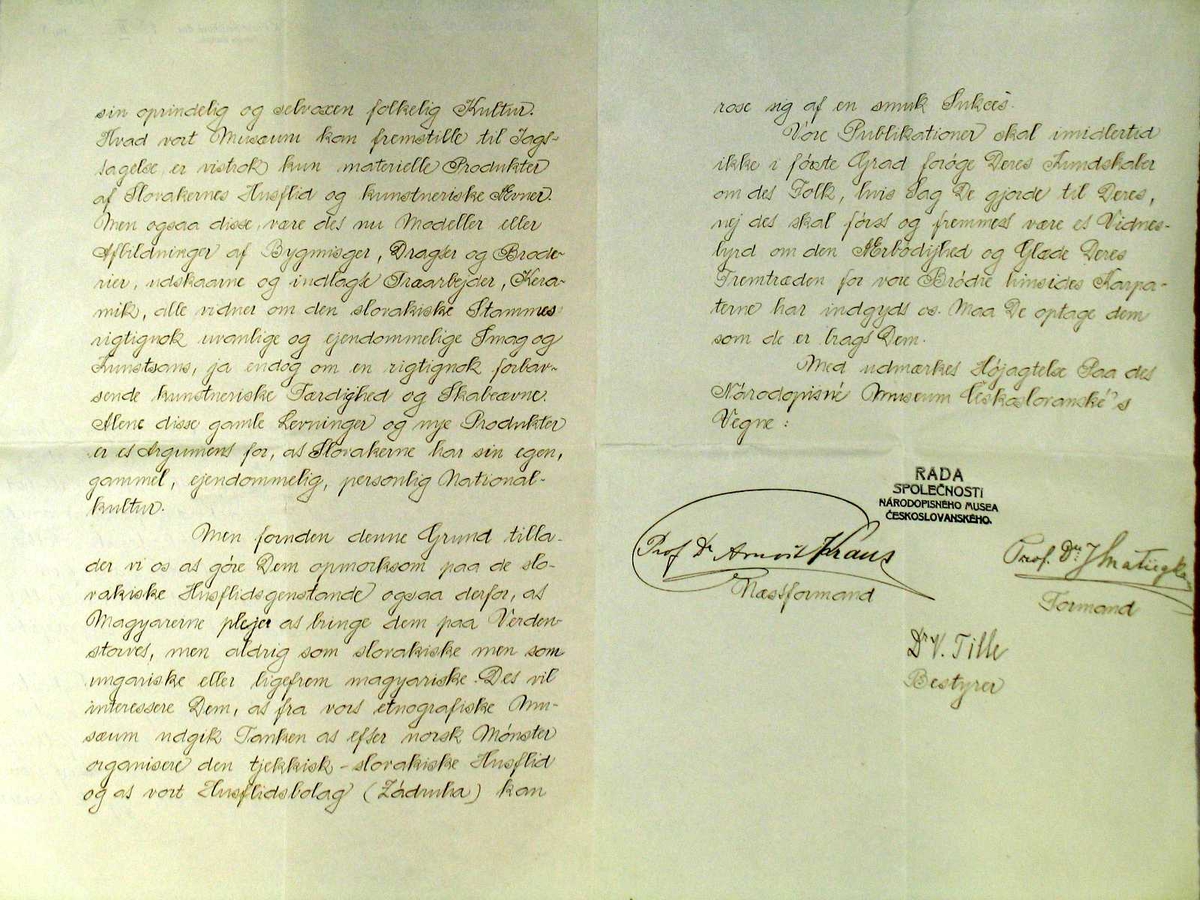 sin oprindelig og selvoxen folkelig Kultur.
Hvad vort Museum kan fremstille til Jagt-
tagelse, er vistnok kun materielle Produkter
af Slovakernes Husflid og kunstneriske Ævner.
Men ogsaa disse, være det nu Modeller eller
Afbildninger af Bygninger, Dragter og Brode-
rier, udskaarne og indlagte Træarbejder, Kera-
mik, alle vidner om den slovakiske Stammes
rigtignok uvanlige og ejendommelige Smag og
Kunstsans, ja endog om en rigtignok forbav-
sende kunstneriske Færdighed og Skabeævne.
Alene disse gamle Levninger og nye Produkter
er et Argument for, at Slovakerne har sin egen,
gammel, ejendommelig, personlig National-
kultur.
Men foruden denne Grund tilla-
der vi os at góre Dem opmorksom paa de slo-
vakiske Husflidsgenstande ogsaa derfor, at
Magyarerne plejer at bringe dem paa Verden-
storvet, men aldrig som slovakiske men som
ungariske eller ligefrem magyariske. Det vil
interessere Dem, at fra vort etnografiske Mu-
sæum udgik Tanken at efter norsk Mónster
organisere den tjekkisk-slovakiske Husflid
og at vort Husflidsbolag (Zádruha) kan
rose sig af en smuk Sukces.
Vóre Publikationer skal imidlertid
ikke i fórste Grad foróge Deres Kundskaber
om det Folk, hvis Sag De gjorde til Deres,
nej det skal fórst og fremmest være et Vidnes-
byrd om den Ærbódighed og Glæde Deres
Fremtræden for vore Bródre hinsides Karpa-
terne har indgydt os. Maa De optage dem
som de er bragt Dem.
Med udmærket Hójagtelse Paa det
Národopisné Museum Českoslovanské's
Vegne:
RADA
SPOLEČNOSTI
NÁRODOPISNÉHO MUSEA
ČESKOSLOVANSKÉHO.
Prof. Dr Arnošt Kraus
Næstformand
Prof. Dr. J Matiegka
Formand
Dr V. Tille
Bestyrer